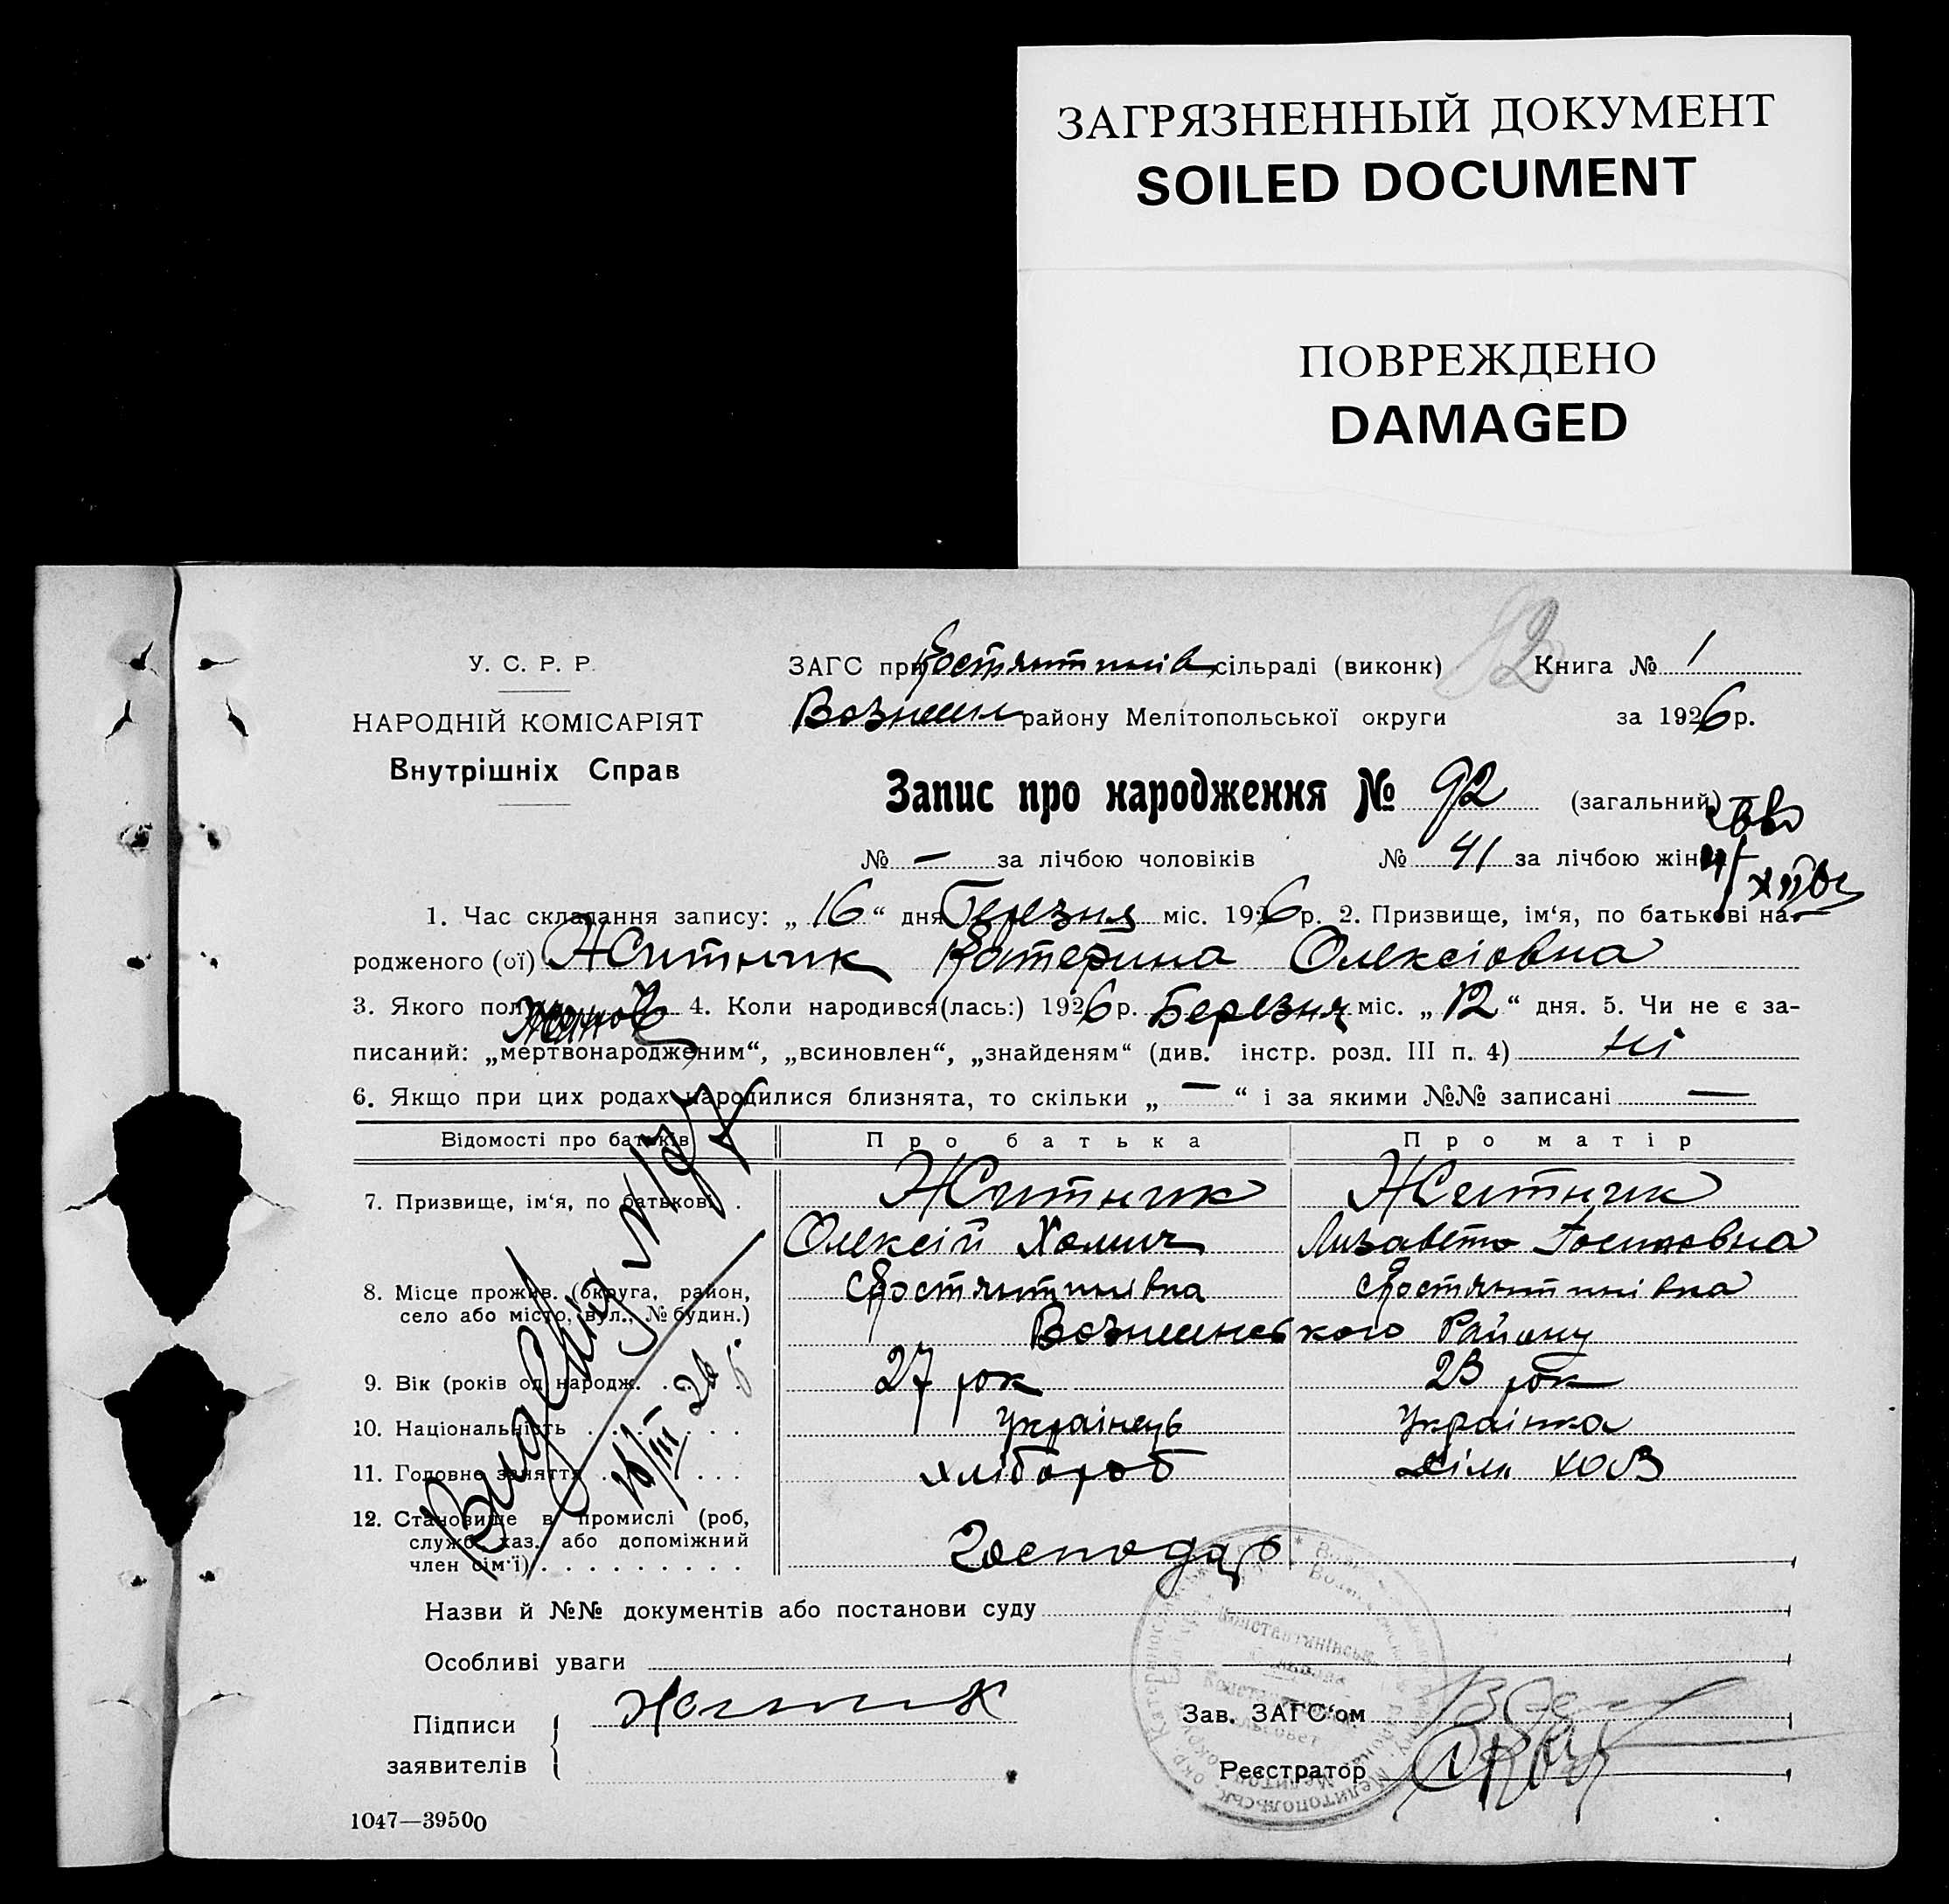 ЗАГРЯЗНЕННЫЙ ДОКУМЕНТ
SOILED DOCUMENT
ПОВРЕЖДЕНО
DAMAGED
92
У. С. Р. Р.
НАРОДНІЙ КОМІСАРІЯТ
Внутрішніх Справ
ЗАГС при Костянтинів сільраді (виконк) Книга № 1
Возншен району Мелітопольської округи за 1926 р.
Запис про народження № 92 (загальний)
№ — за лічбою чоловіків № 41 за лічбою жін
1. Час складання запису: „ 16 “ дня Березня міс. 1926 р. 2. Призвище, ім‘я, по батькові на-
родженого (ої) Житник Катерина Олексіовна
3. Якого пол Жіноч 4. Коли народився(лась:) 1926 р. Березня міс. „ 12 “ дня. 5. Чи не є за-
писаний: „мертвонародженим“, „всиновлен“, „знайденям“ (див. інстр. розд. III п. 4) Ні
6. Якщо при цих родах народилися близнята, то скільки „ — “ і за якими №№ записані —
Відомості про батьків Про батька Про матір
7. Призвище, ім‘я, по батькові . Житник Житник
Олексій Хомич Лизавета Йосиповна
8. Місце прожив. (округа, район, с Костянтинівка с Костянтинівка
село або місто, вул., № будин.) Возншенського Району
9. Вік (років од народж. 27 рок 23 рок
10. Національність Українець Українка
11. Головне заняття хлібороб Хов
12. Становище в промислі (роб,
служб. хаз. або допоміжний
член сім‘ї) Господарь
16/III 26
Назви й №№ документів або постанови суду
Особливі уваги
Підписи Житник Зав. ЗАГС‘ом
заявителів Реєстратор
1047—39500